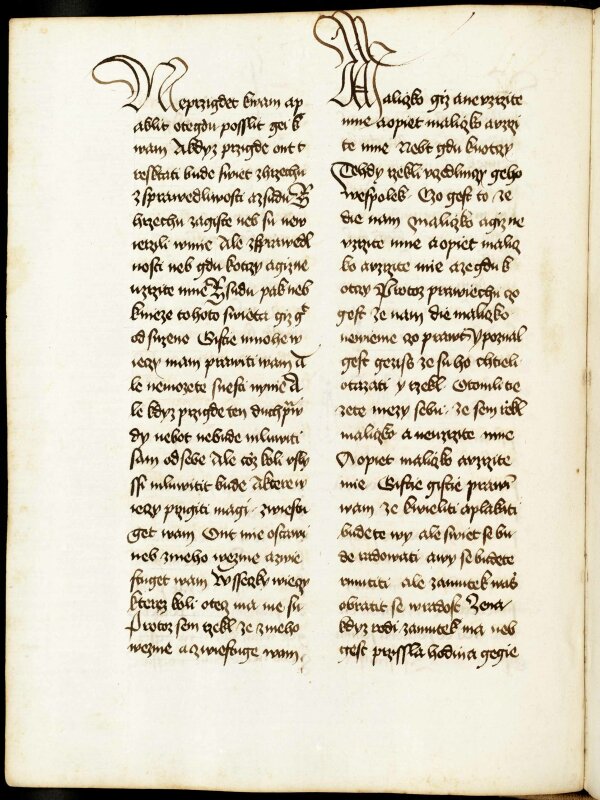 Neprzigdet kwam ap
ablit otegdu posslit gei k
wam Akdyz przigde ont t
resktati bude swiet zhrzechu
zsprawedliwosti azsudu Z
hrzechu zagiste neb su new
ierzili wmie Ale zsprawedl
nosti neb gdu kotczy agizne
uzrzite mne Zsudu pak neb
knieze tohoto swieta giz gt
odsuzeno Gistie mnohe w
ieczy mam prawiti wam A
le nemozete snesti nynie A
le kdyz przigde ten duch praw
dy nebot nebude mluwiti
sam odsebe Ale coz koli usly
ssi mluwitit bude Akterew
ieczy przigiti magi zwiestu
get wam Ont mie oslawi
neb zmeho wezme azwie
stuget wam Wsseczky wieczy
kterez koli otecz ma me su
Protoz sem rzekl ze zmeho
wezme azwiestuge wam
Maliczko giz aneuzrzite
mne aopiet maliczko auzrzi
te mne Nebt gdu kuotczy
Tehdy rzekli uczedlniczy geho
wespolek Czo gest to ze
die nam Maliczko agiz ne
uzrzite mne aopiet malicz
ko auzrzite mie azegdu k
otczy Protoz prawiechu czo
gest ze nam die maliczko
newieme czo prawi Ypoznal
gest gezus ze su ho chtieli
otazati y rzekl Otomli tie
zete mezy sebu ze sem rzekl
maliczko aneuzrzite mne
Aopiet maliczko auzrzite
mie Gistie gistie prawi
wam ze kwieliti aplakati
budete wy ale swiet se bu
de radowati awy se budete
rmutiti ale zamutek was
obratit se wradost Zena
kdyz rodi zamutek ma neb
gest przissla hodina gegie